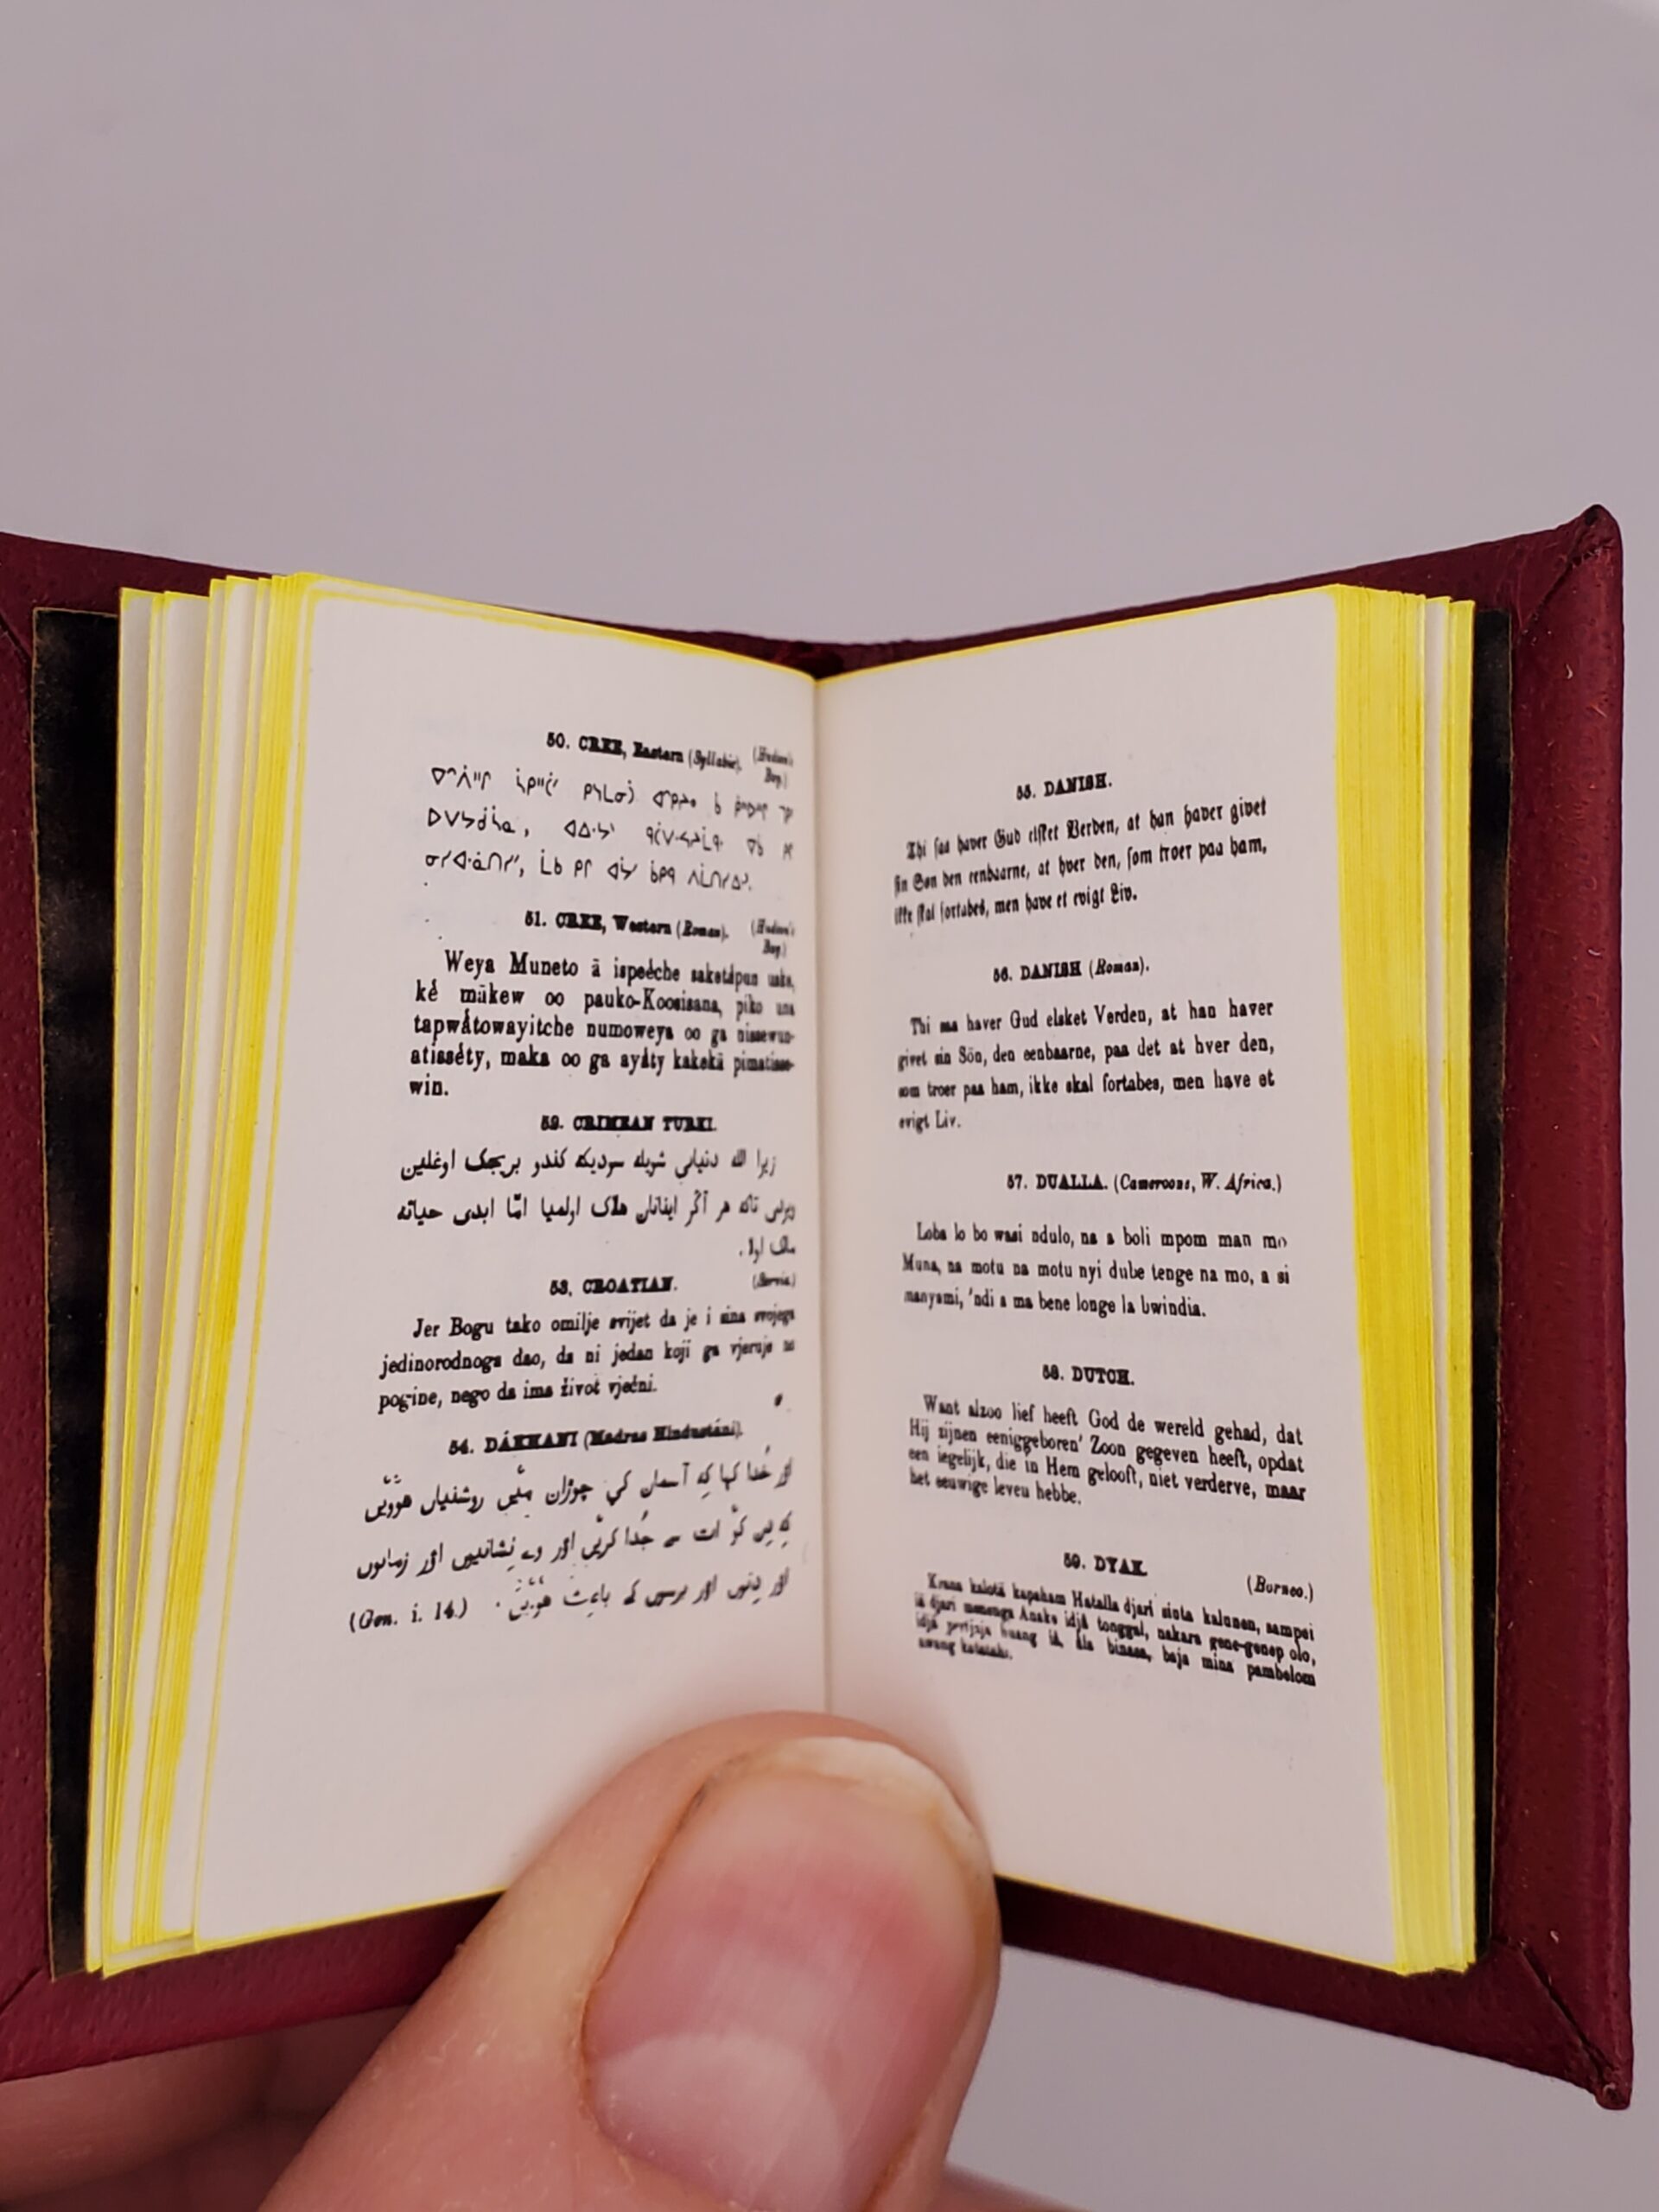 50. CREE, Eastern (Syllabic). (Hudson's
Bay.)
51. CREE, Western (Roman). (Hudson's
Bay.)
Weya Muneto ā ispeėche saketȧpun uske,
kė mākew oo pauko-Koosisana, piko una
tapwȧtowayitche numoweya oo ga nissewun-
atissėty, maka oo ga ayȧty kakekā pimatisse-
win.
52. CRIMEAN TURKI.
زيرا الله دنيايى شويله سوديكه كندو بريجك اوغلين
ويردى تاكه هر آكر اينانان هلاك اولميا امّا ابدى حياته
مالك اولا .
53, CROATIAN. (Servia.)
Jer Bogu tako omilje svijet da je i sina svojega
jedinorodnoga dao, da ni jedan koji ga vjeruje ne
pogine, nego da ima život vječni.
54. DÁKHANI (Madras Hindustáni).
اور خُدا كہا كِه آسمان كي جوڑان مَیں روشنیاں هوویں
كِه دِن كو رات سے جُدا كریں اور وے نِشانیوں اور زمانوں
اور دِنوں اور برسوں كے باعِث هوویں .
(Gen. i. 14.)
55. DANISH.
Thi saa haver Gud elsket Verden, at han haver givet
sin Søn den eenbaarne, at hver den, som troer paa ham,
ikke skal fortabes, men have et evigt Liv.
56. DANISH (Roman).
Thi saa haver Gud elsket Verden, at han haver
givet sin Sön, den eenbaarne, paa det at hver den,
som troer paa ham, ikke skal fortabes, men have et
evigt Liv.
57. DUALLA. (Cameroons, W. Africa.)
Loba lo bo wasi ndulo, na a boli mpom man mo
Muna, na motu na motu nyi dube tenge na mo, a si
manyami, 'ndi a ma bene longe la bwindia.
58. DUTCH.
Want alzoo lief heeft God de wereld gehad, dat
Hij zijnen eeniggeboren' Zoon gegeven heeft, opdat
een iegelijk, die in Hem gelooft, niet verderve, maar
het eeuwige leven hebbe.
59. DYAK. (Borneo.)
Krana kalotä kapaham Hatalla djari sinta kalunen, sampei
iä djari menenga Anake idjä tonggal, nakara gene-genep olo,
idjä huang iä, äla binasa, baja mina pambelom
awang katatahi.